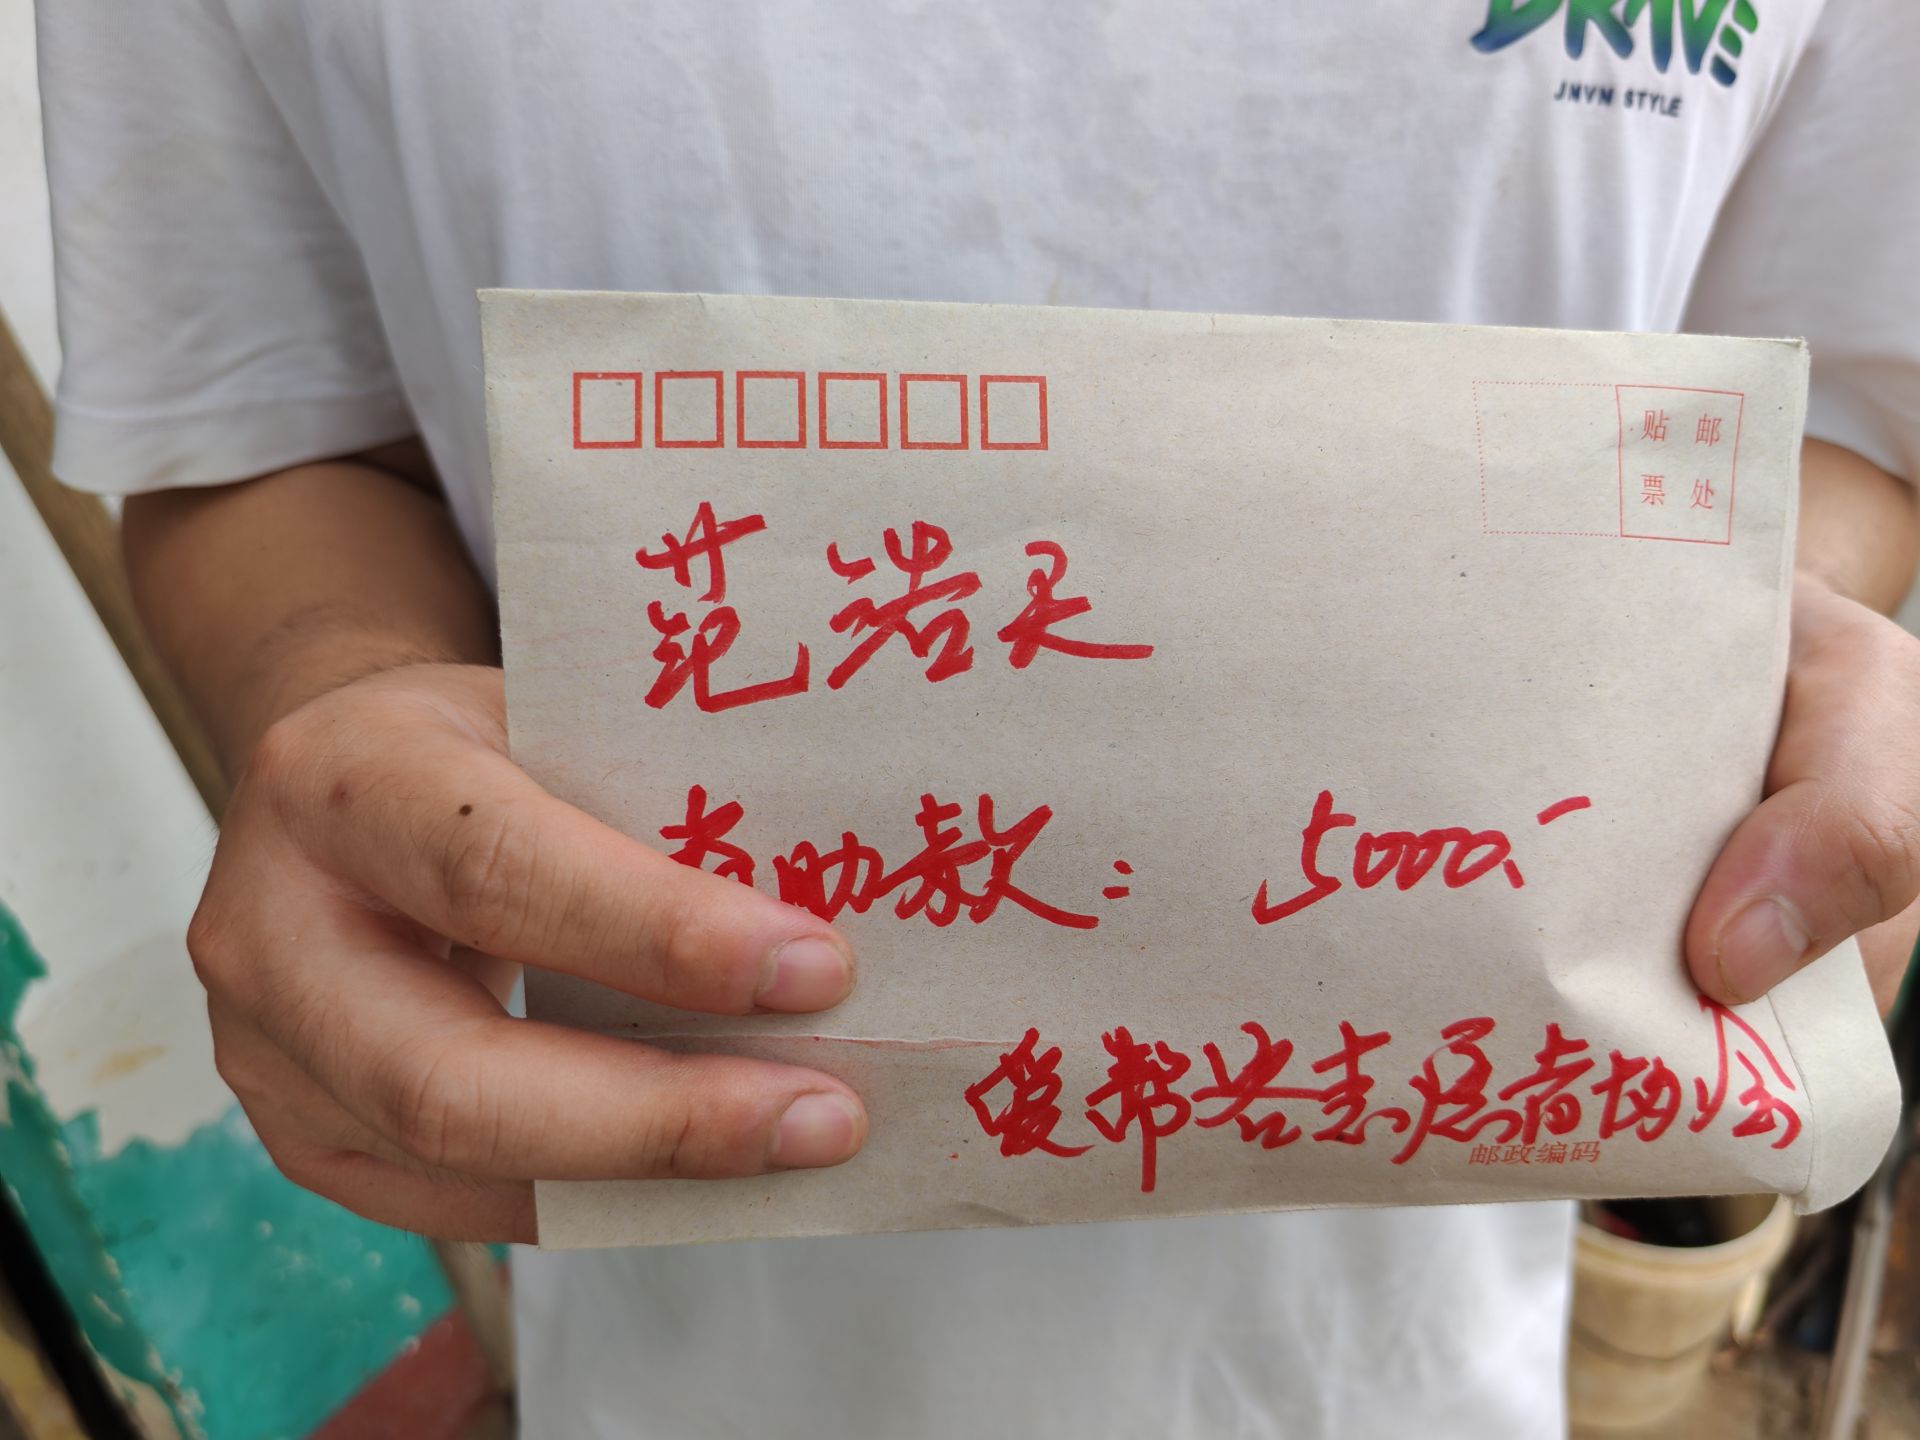 JNVN STYLE
贴邮
票处
范浩灵
资助款：5000.-
爱帮客志愿者协会
邮政编码